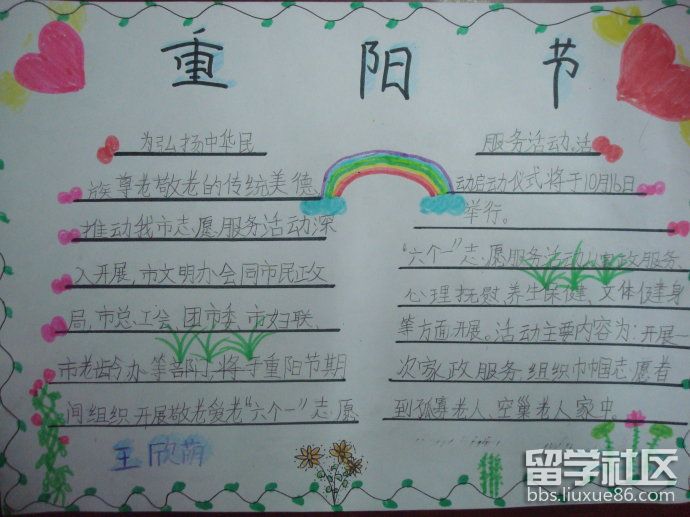 重阳节
为弘扬中华民
族尊老敬老的传统美德,
推动我市志愿服务活动深
入开展,市文明办会同市民政
局、市总工会、团市委、市妇联、
市老龄办等部门,将于重阳节期
间组织开展敬老爱老“六个一”志愿
王欣荫
服务活动,活
动启动仪式将于10月16日
举行。
“六个一”志愿服务活动从家政服务、
心理抚慰、养生保健、文体健身
等方面开展。活动主要内容为:开展一
次家政服务,组织巾帼志愿者
到孤寡老人、空巢老人家中。
留学社区
bbs.liuxue86.com